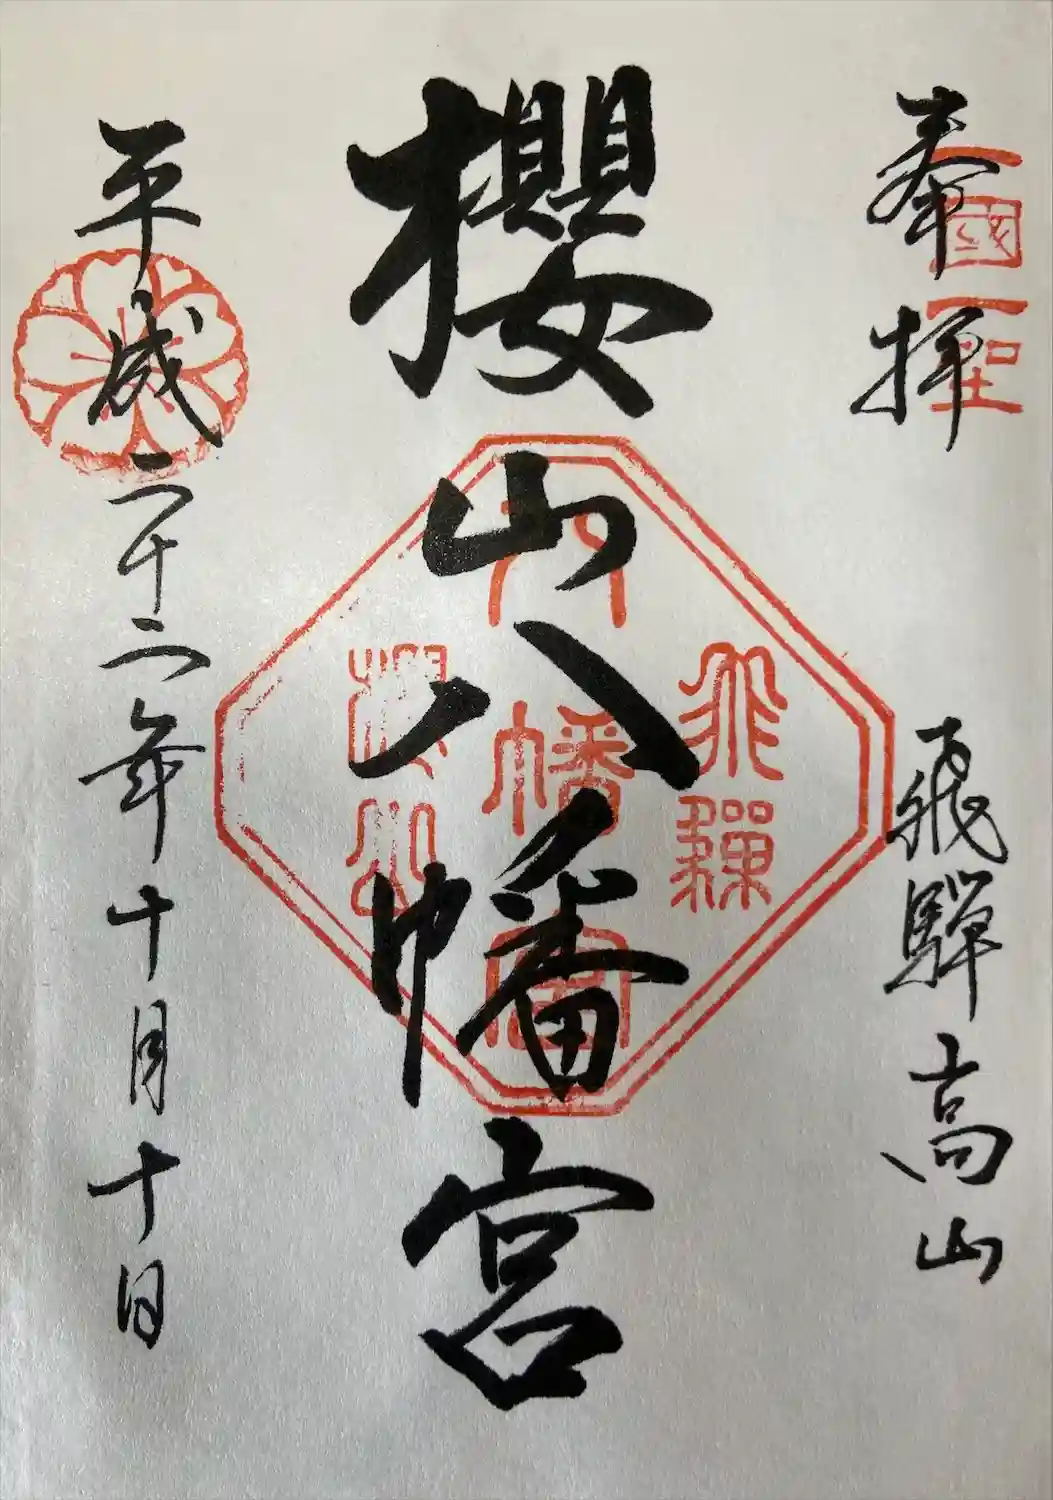 奉拝
飛驒高山
一國一
櫻山八幡宮
飛驒
八幡宮
櫻山
平成二十二年十月十日